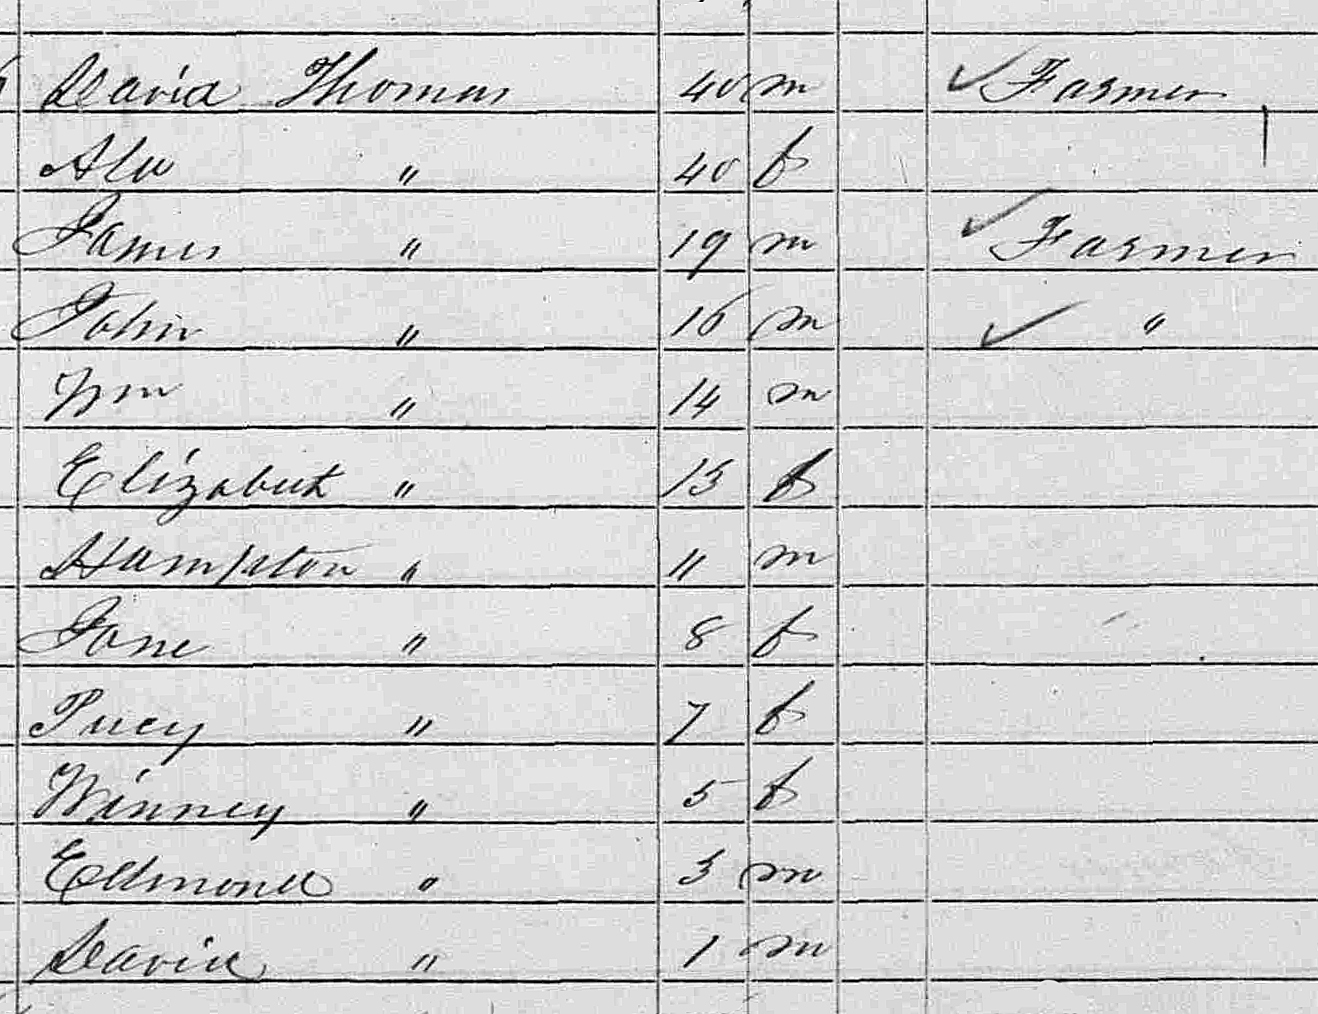 David Thomas 40 m Farmer
Alu " 40 f
James " 19 m Farmer
John " 16 m "
Wm " 14 m
Elizabeth " 13 f
Hampton " 11 m
Jane " 8 f
" 7 f
Winney " 5 f
Edmond " 3 m
David " 1 m